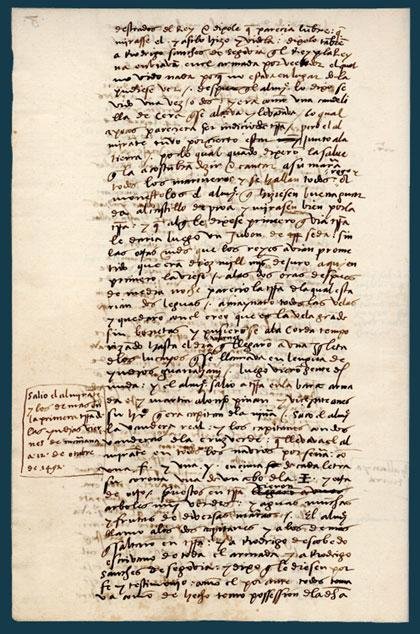 destrados del Rey e dixole q̃ pareçia lūbre: q̃
mirasse el. y asi lo hizo y vidola: dixolo tābiē
a Rodrigo sanches de segovia q̃l Rey y la Rey
na enviavā en el armada por veedor el qual
no vido nada porq̃ no estava en lugar do la
pudiese ver /. despues q̃l almyͤ lo dixo se
vido una vez o dos / y era como una candeli
lla de çera q̃ se alçava y levātava / lo qual
a pocos pareçiera ser indiçio de trr̃a /. pero el al
mirāte tuvo por çierto estar junto a la
tierra /. por lo qual quādo dixerō la salve
q̃ la acostūbrā dezir e cantar a su maña
todos los marineros y se hallan todos: rogo y
amonestolos el almyͤ q̃ hiziesen buena guar
da al castillo de proa / y mirasen bien por la
trr̃a / y q̃ al q̃ le dixese primero q̃ via trr̃a
le daria luego un jubon de seda / sin
las otras mds que los reyes aviā prome
tido que erā diez mill mrs de juro a quien
primero la viese /. a las dos oras despues
de media noche pareçio la trr̃a dela qual esta
rian dos leguas /. amaynarō todas las velas
y quedarō con el treo que es la vela grāde
sin bonetas / y pusierōse ala corda tempo
rizādo hasta el dia q̃ llegarō a una isleta
delos lucayos q̃ se llamava en lengua de
yndios guanahani /. luego vierō gente des
nuda: y el almyͤ salio a trr̃a en la barca arma
da y martin alonso pinçon y viçeynteanes
su hrͦ q̃ era capitan dela niña /. saco el almyͤ
la vandera real: y los capitanes cō dos
vanderas dela cruz verde: q̃ llevava el al
mirāte en todos los navios por seña: cō
una .f. y una .y. ençima de cada letra
su corona una de un cabo dela + y otra
de otro /. puestos en trr̃a vierō
arboles muy verdes: y aguas muchas
y frutas de diversas maneras /. El almyͤ
llamo alos dos capitanes y alos demas
q̃ saltarō en trr̃a /. y a Rodrigo descobedo
escrivano de toda el armada / y a Rodrigo
sanches de segovia: y dixo q̃ le diesen por
fe y testimoͦ como el por ante todos toma
va como de hecho tomo possession dela dha
salio el almirāte
y los demas en
la primera trr̃a de
las yndias vier
nes de mañana
a .12. de otubre
de .1492.